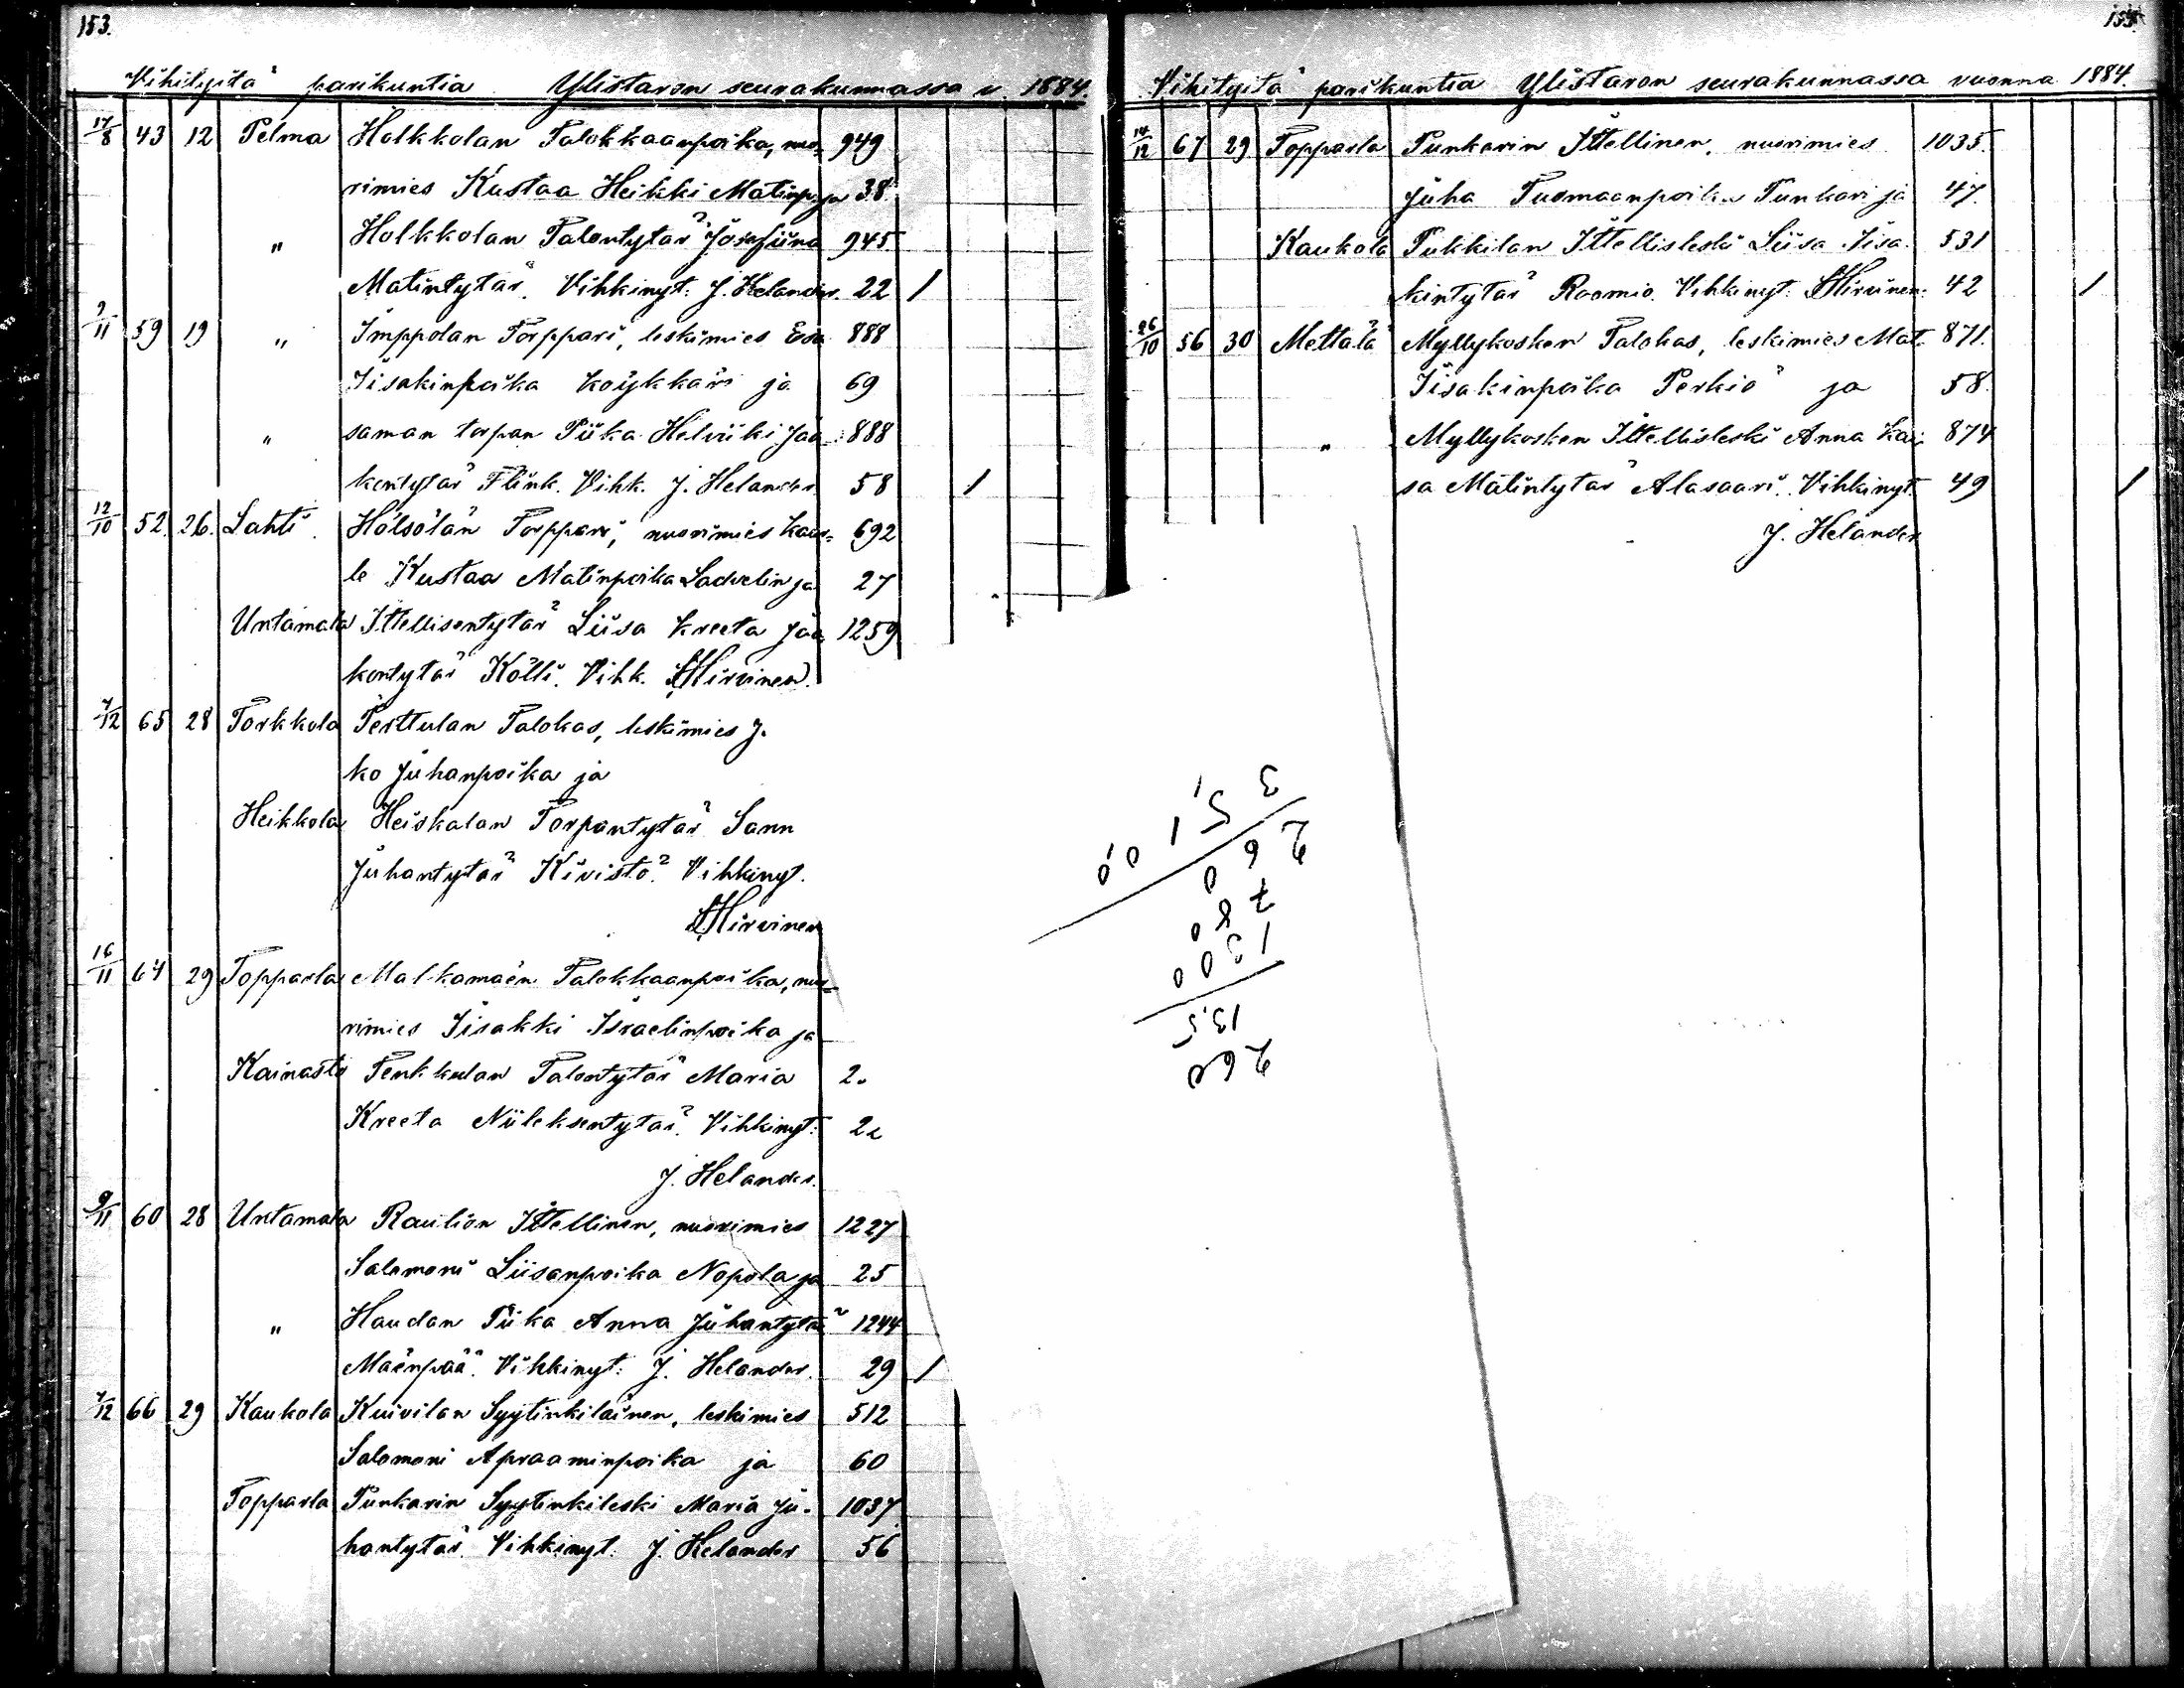 153.
Vihityitä parikuntia Ylistaron seurakunnassa v. 1884.
17/8 43 12 Pelma Holkkolan Talokkaanpoika, nuo- 949
rimies Kustaa Heikki Matinp. ja 38.
" Holkkolan Talontytär Josefiina 945
Matintytär. Vihkinyt: J. Helander. 22 /
9/11 59 19 " Imppolan Torppari, leskimies Esa 888
Iisakinpoika Köykkäri ja 69
" saman torpan Piika Helviiki Jaa- 888
kontytär Flink. Vihk. J. Helander. 58 /
12/10 52. 26. Lahti. Hölsölän Torppari, nuorimies Kaar- 692
le Kustaa Matinpoika Ladvelin ja 27
Untamala Ittellisentytär Liisa Kreeta Jaa- 1259
kontytär Kölli. Vihk. Hirvinen.
7/12 65 28 Torkkola Perttulan Talokas, leskimies J.
ko Juhanpoika ja
Heikkola Heiskalan Torpantytär Sann
Juhantytär Kivistö. Vihkinyt.
Hirvinen
16/11 64 29 Topparla Malkamäen Talokkaanpoika, nuo-
rimies Iisakki Israelinpoika ja
Kainasto Penkkulan Talontytär Maria 2
Kreeta Niileksentytär. Vihkinyt: 22
J. Helander.
9/11 60 28 Untamala Raution Ittellinen, nuorimies 1227
Salomoni Liisanpoika Nopola ja 25
" Haudan Piika Anna Juhantytär 1244
Mäenpää. Vihkinyt: J. Helander. 29 /
7/12 66 29 Kaukola Kuivilan Syytinkiläinen, leskimies 512
Salomoni Apraaminpoika ja 60
Topparla Punkarin Syytinkileski Maria Ju- 1037.
hantytär. Vihkinyt: J. Helander 56
Vihityitä parikuntia Ylistaron seurakunnassa vuonna 1884.
14/12 67 29 Topparla Punkarin Ittellinen, nuorimies 1035.
Juha Tuomaanpoika Punkari ja 47.
Kaukola Pukkilan Ittellisleski Liisa Iisa- 531
kintytär Roomio. Vihkinyt: Hirvinen. 42 /
26/10 56 30 Mettälä Myllykosken Talokas, leskimies Mat. 871.
Iisakinpoika Perkiö ja 58.
" Myllykosken Ittellisleski Anna Kai- 874
sa Matintytär Alasaari. Vihkinyt. 49 /
J. Helander
260
13.5
1300
780
260